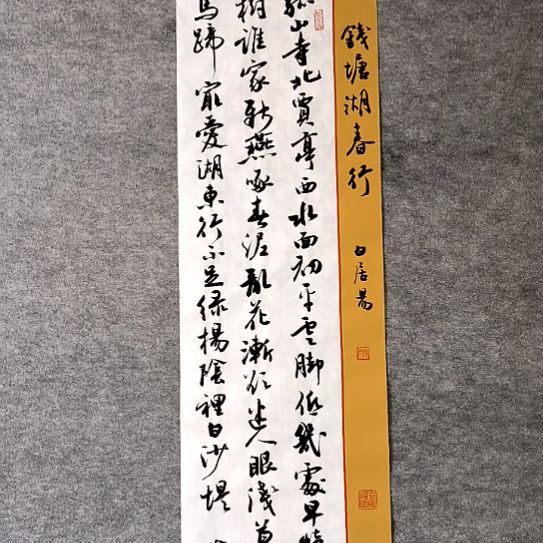 錢塘湖春行
白居易
孤山寺北賈亭西水面初平雲脚低幾處早鶯
樹誰家新燕啄春泥亂花漸欲迷人眼淺草
馬蹄最愛湖東行不足緑楊陰裡白沙堤